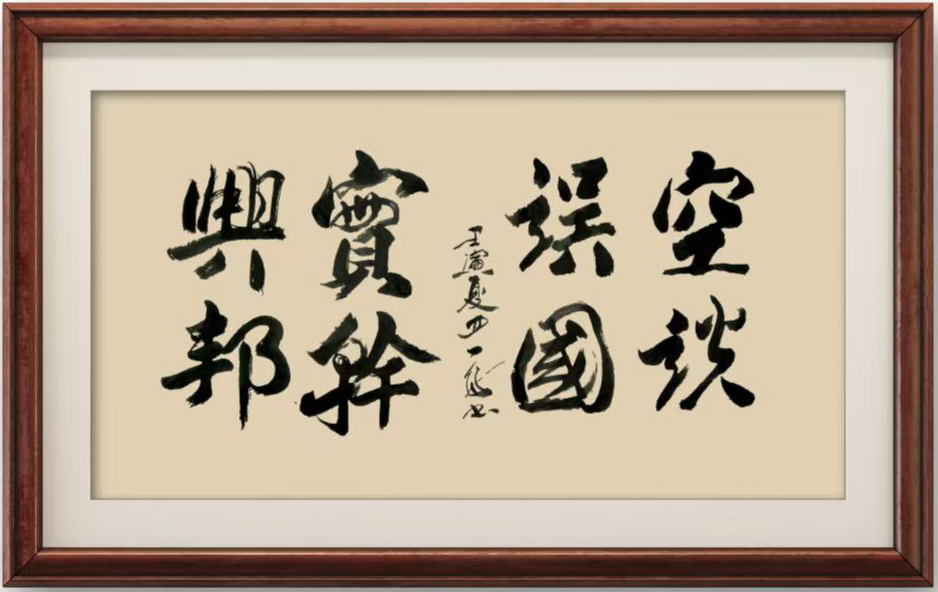 空談
誤國
壬寅夏
實幹
興邦